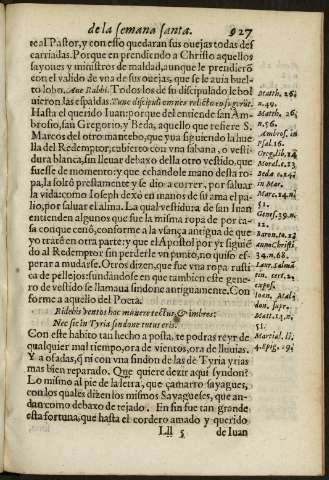 de la semana santa. 927
te al Pastor, y con esso quedaran sus ouejas todas des
carriadas. Porque en prendiendo a Christo aquellos
sayones y ministros de maldad, aunque le prendierõ
con el valido de vna de sus ouejas, que se le auia buel-
to lobo. Aue Rabbi. Todos los de su discipulado le bol
uieron las espaldas. Tunc discipuli omnes relicto eo fugerũt.
Hasta el querido Iuan: porque del entiende san Am-
brosio, san Gregorio, y Beda, aquello que refiere S.
Marcos del otro mancebo, que yua siguiendo la huella
del Redemptor, cubierto con vna sabana, o vesti-
dura blanca, sin lleuar debaxo della otro vestido, que
fuesse de momento: y que echandole mano desta ro-
pa, la soltò prestamente y se dio a correr, por saluar
la vida: como Ioseph dexò en manos de su ama el pa-
lio, por saluar el alma. La qual vestidura de san Iuan
entienden algunos que fue la misma ropa de por ca-
sa con que cenò, conforme a la vsança antigua de que
yo tratè en otra parte: y que el Apostol por yr siguiẽ
do al Redemptor sin perderle vn punto, no quiso es-
perar a mudarse. Otros dizen, que fue vna ropa rusti
ca de pellejos: fundandose en que tambien este gene-
ro de vestido se llamaua sindone antiguamente. Con
forme a aquello del Poeta.
Ridebis ventos hac munere tectus, & imbres:
Nec sic in Tyria sindone tutus eris.
Con este habito tan hecho a posta, te podras reyr de
qualquier mal tiempo, ora de vientos, ora de lluuias.
Y a osadas, q̃ ni con vna sindon de las de Tyria yrias
mas bien reparado. Que quiere dezir aqui syndon?
Lo mismo al pie de la letra, que çamarro sayagues,
con los quales dizen los mismos Sayagueses, que an-
dan como debaxo de tejado. En fin fue tan grande
esta fortuna, que hasta el cordero amado y querido
Lll 5 de Iuan
Matth. 26.
n. 49.
Matth. 26.
n. 56.
Ambros. in
Psal. 36.
Greg. lib. 14
Moral. c. 23.
Beda c. 14.
in Mar.
Marc. 14. nu.
51.
Genes. 39. n.
12.
Baron. to. 1.
anno Christi
34. n. 68.
51.
Martial. li.
4. Epig. 19.